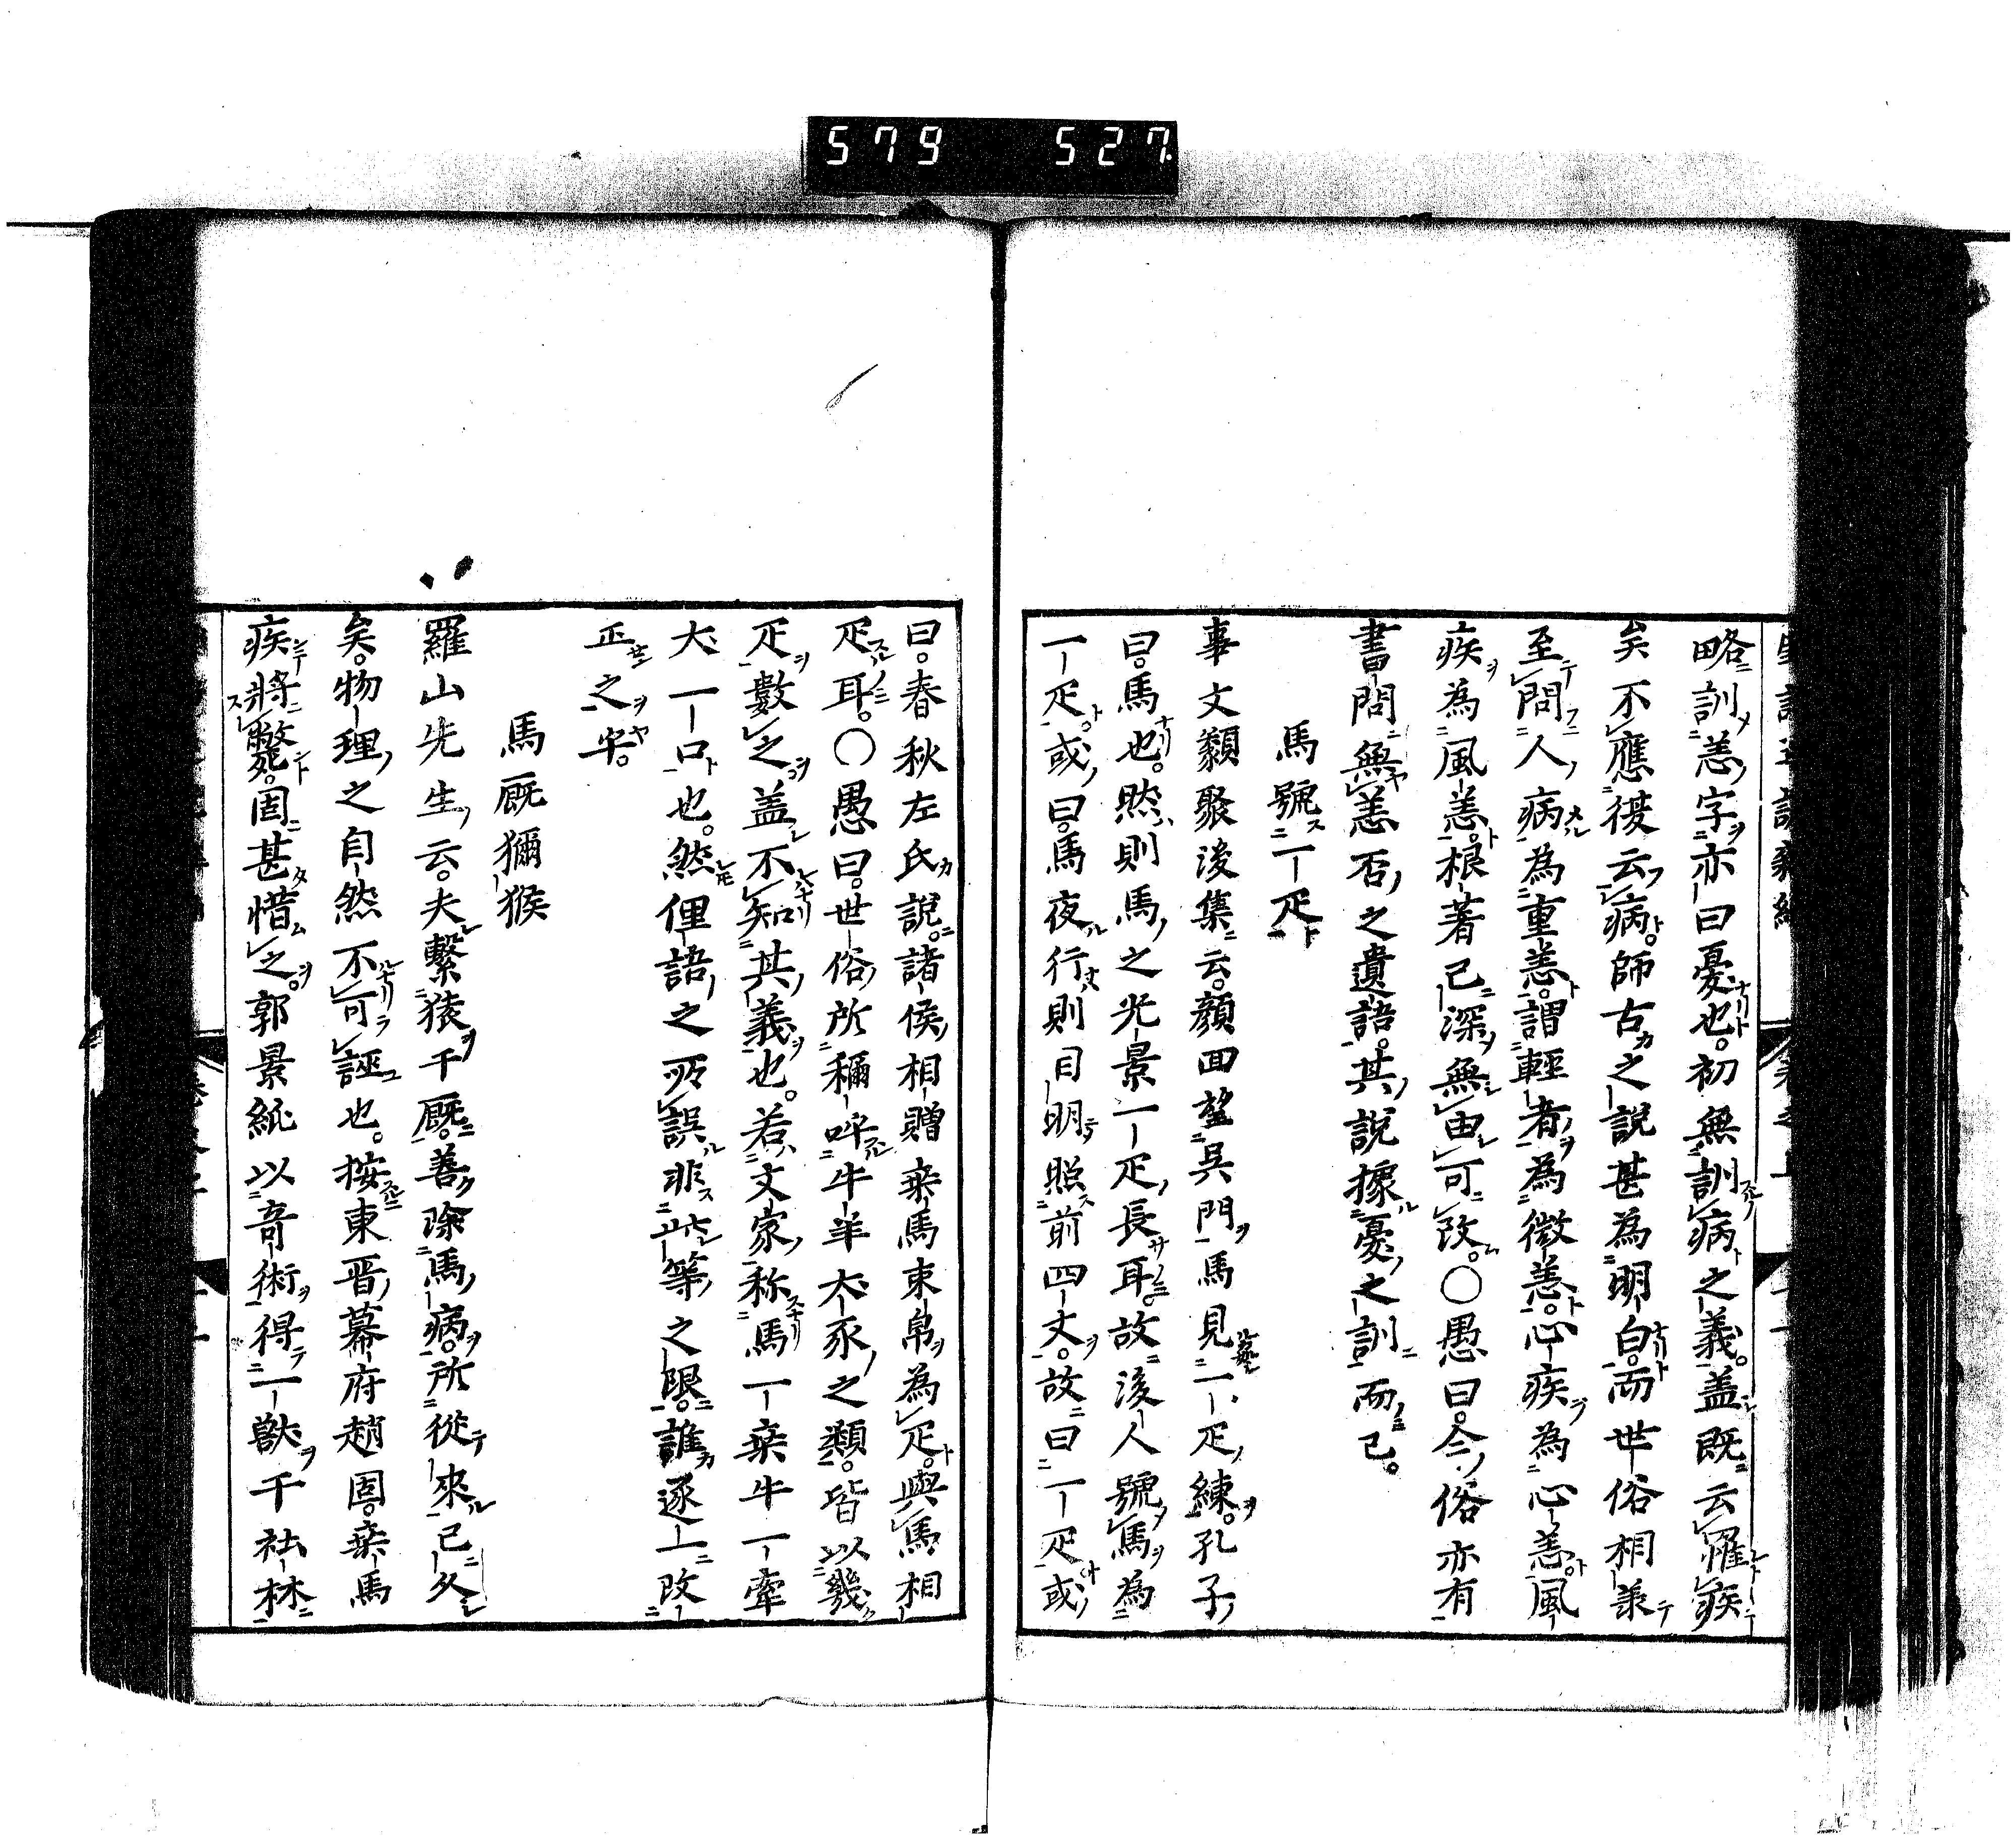 579 527
略訓恙字亦曰憂也。初無訓病之義。盖既云罹疾
矣不應復云病。師古之説甚為明白。而世俗相承
至問人病為重恙。謂輕者為微恙。心疾為心恙風
疾為風恙。根著已深無由可改。○愚曰。今俗亦有
書問無恙否之遺語。其説據憂之訓而已。
馬號一疋
事文類聚後集云。顔回望呉門馬見一疋練。孔子
曰。馬也。然則馬之光景一疋長耳。故後人號馬為
一疋。或曰。馬夜行則目明照前四丈。故曰一疋。或
曰。春秋左氏説。諸侯相贈乗馬束帛為疋。與馬相
疋耳。○愚曰。世俗所稱呼牛羊犬豕之類。皆以幾
疋數之。盖不知其義也。若文家称馬一乗牛一牽
犬一口也。然俚語之所誤非此等之限。誰逐上改
正之乎。
馬厩獮猴
羅山先生云。夫繫猿于厩。善除馬病。所従來已久
矣。物理之自然不可誣也。按東晋幕府趙固。乗馬
疾將斃。固甚惜之。郭景純以奇術得一獸于社林